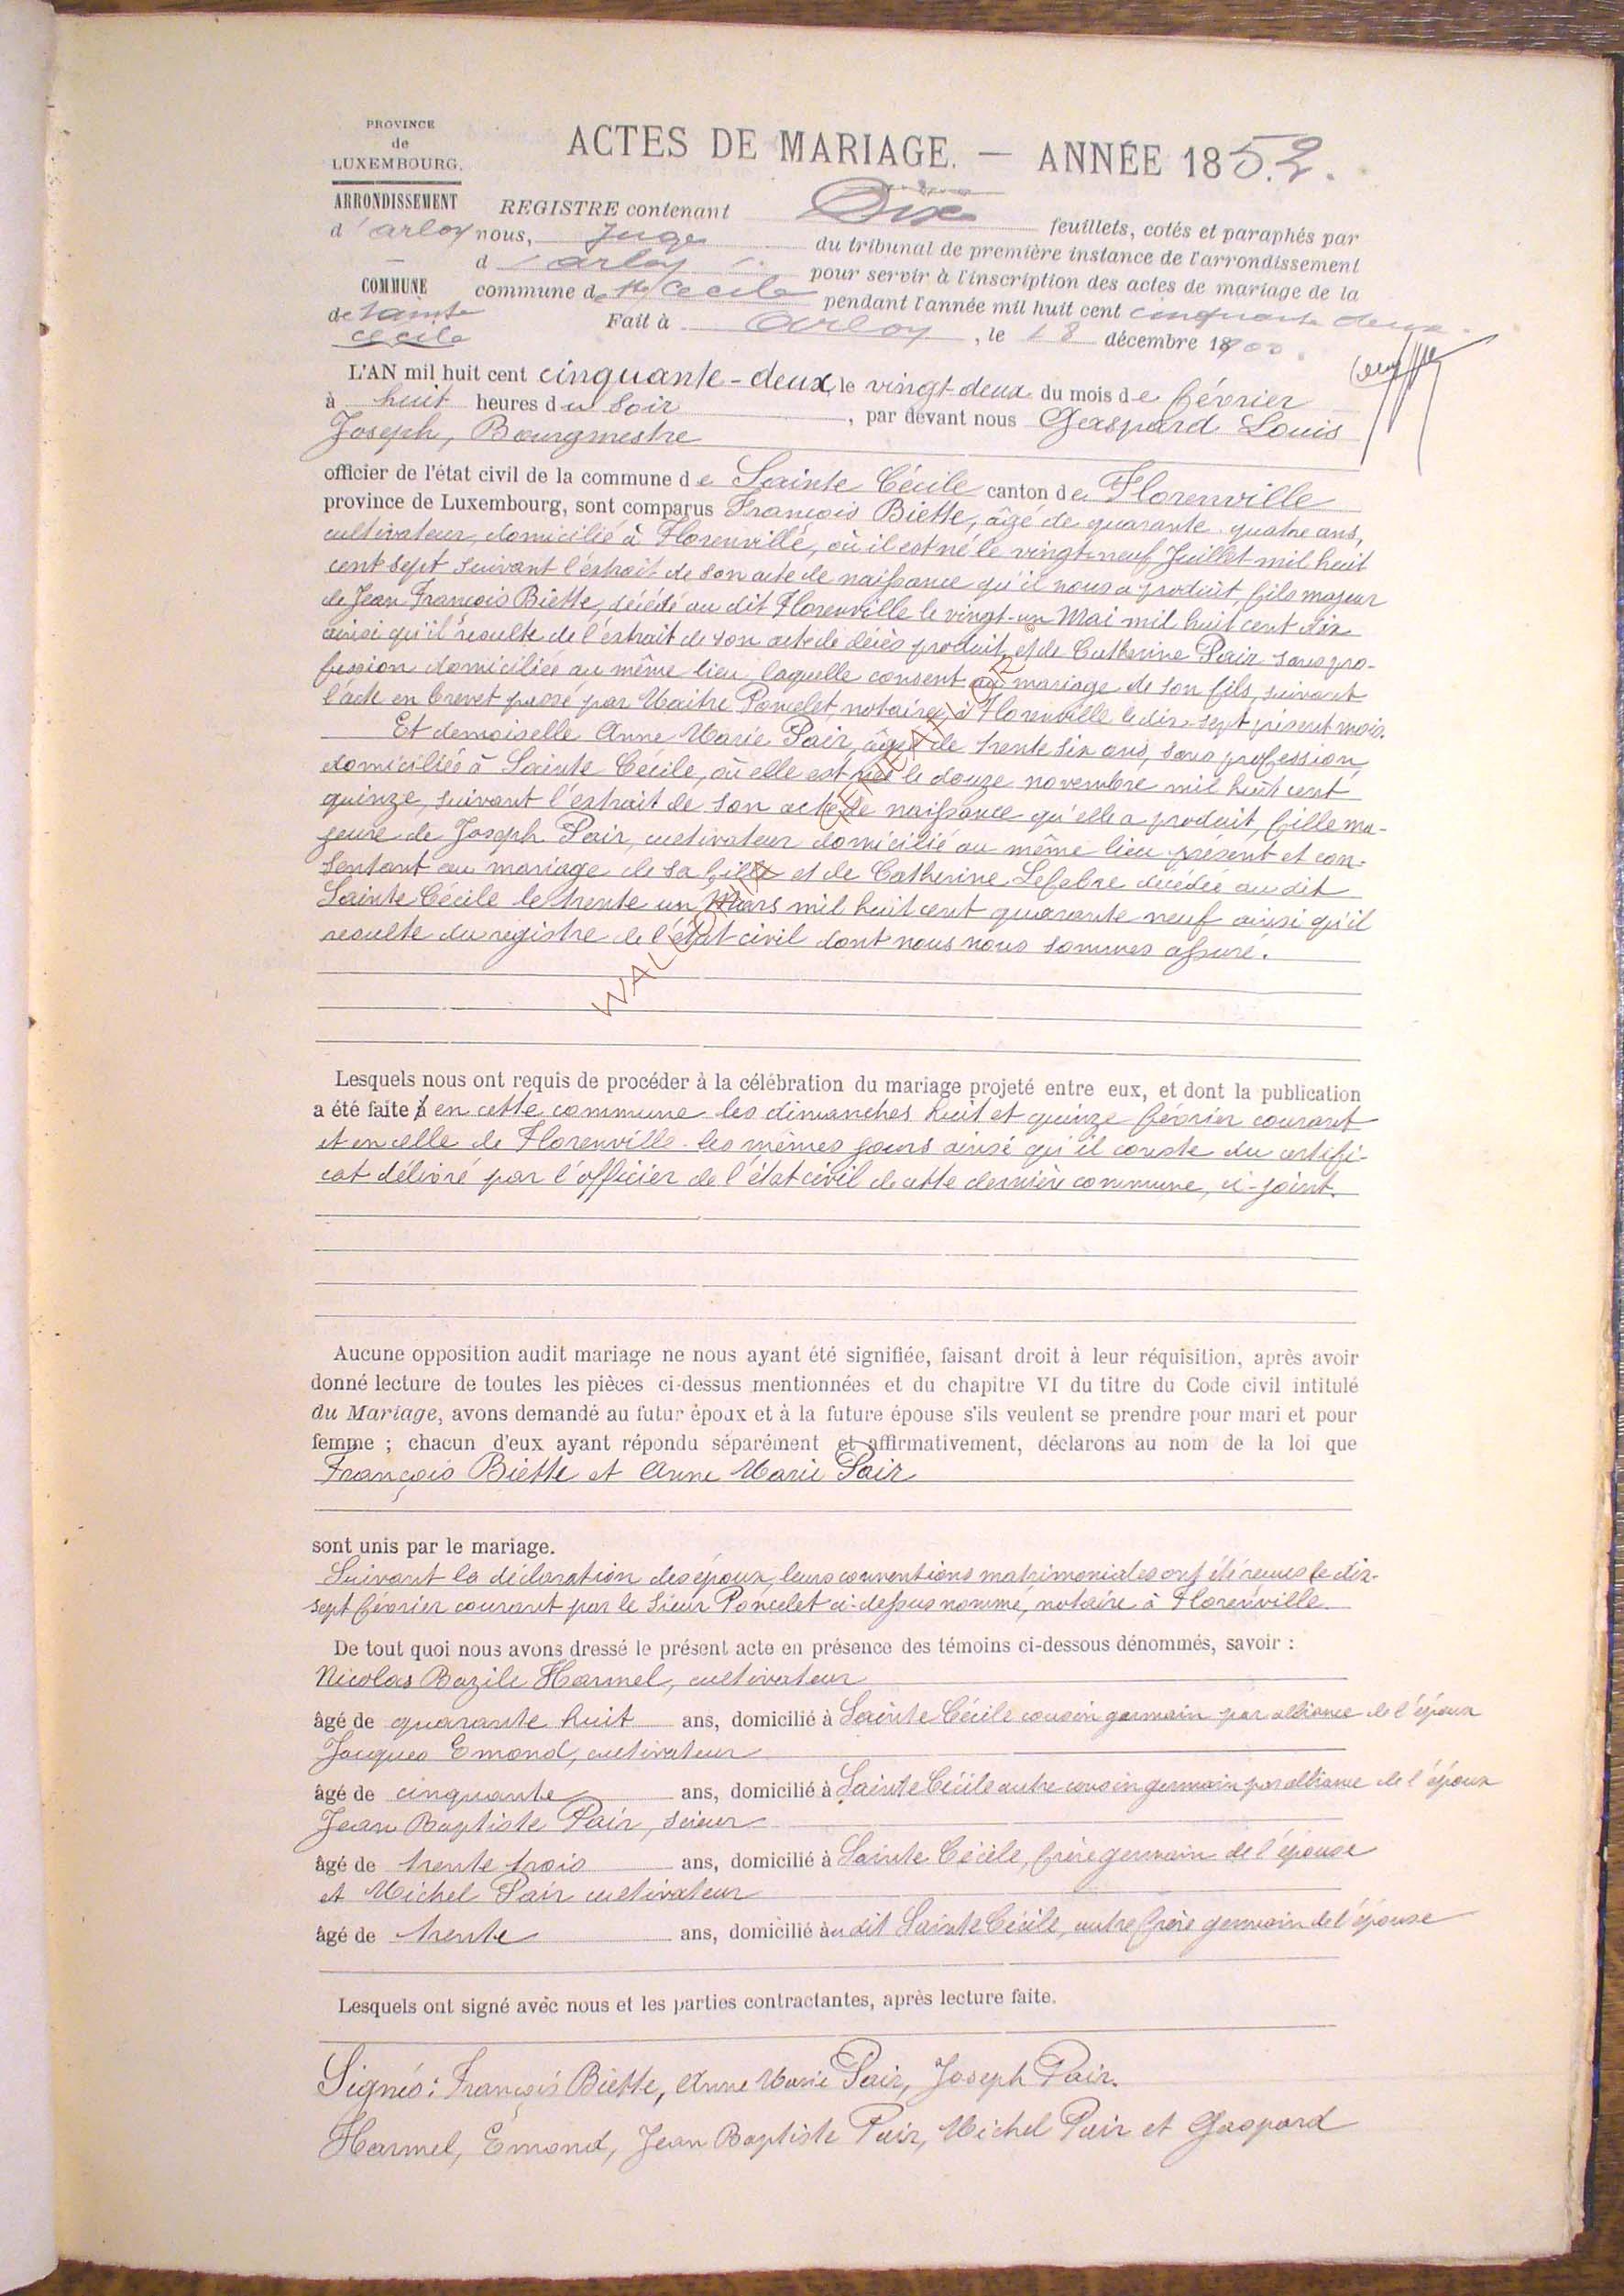 PROVINCE
de
LUXEMBOURG.
ARRONDISSEMENT
d'arlon
COMMUNE
de Sainte
Cécile
ACTES DE MARIAGE. — ANNÉE 1852.
REGISTRE contenant Dix feuillets, cotés et paraphés par
nous, Juge du tribunal de première instance de l'arrondissement
d'arlon pour servir à l'inscription des actes de mariage de la
commune de Ste Cecile pendant l'année mil huit cent cinquante deux.
Fait à Arlon, le 18 décembre 1900.
L'AN mil huit cent cinquante-deux, le vingt-deux du mois de février
à huit heures du soir, par devant nous Gaspard Louis
Joseph, Bourgmestre
officier de l'état civil de la commune de Sainte Cécile canton de Florenville
province de Luxembourg, sont comparus François Biette, âgé de quarante quatre ans,
cultivateur, domicilié à Florenville, où il est né le vingt-neuf Juillet mil huit
cent sept suivant l'extrait de son acte de naissance qu'il nous a produit, fils majeur
de Jean François Biette, décédé au dit Florenville le vingt-un Mai mil huit cent dix
ainsi qu'il resulte de l'extrait de son acte de décès produit, et de Catherine Pair sans pro-
fession domiciliée au même lieu, laquelle consent au mariage de son fils, suivant
l'acte en brevet passé par Maitre Poncelet, notaire à Florenville le dix-sept présent mois.
Et demoiselle Anne Marie Pair, âgée de trente six ans, sans profession,
domiciliée à Sainte Cécile, où elle est née le douze novembre mil huit cent
quinze, suivant l'extrait de son acte de naissance qu'elle a produit, fille ma-
jeure de Joseph Pair, cultivateur domicilié au même lieu présent et con-
sentant au mariage de sa fille et de Catherine Lefebre décédée au dit
Sainte Cécile le trente un Mars mil huit cent quarante neuf ainsi qu'il
resulte du registre de l'état civil dont nous nous sommes assuré.
WALLONIA GENEALOGIE ©
Lesquels nous ont requis de procéder à la célébration du mariage projeté entre eux, et dont la publication
a été faite à en cette commune les dimanches huit et quinze février courant
et en celle de Florenville les mêmes jours ainsi qu'il conste du certifi-
cat délivré par l'officier de l'état civil de cette dernière commune, ci-joint.
Aucune opposition audit mariage ne nous ayant été signifiée, faisant droit à leur réquisition, après avoir
donné lecture de toutes les pièces ci-dessus mentionnées et du chapitre VI du titre du Code civil intitulé
du Mariage, avons demandé au futur époux et à la future épouse s'ils veulent se prendre pour mari et pour
femme ; chacun d'eux ayant répondu séparément et affirmativement, déclarons au nom de la loi que
François Biette et Anne Marie Pair
sont unis par le mariage.
Suivant la déclaration des époux, leurs conventions matrimoniales ont été reçues le dix-
sept février courant par le Sieur Poncelet ci-dessus nommé, notaire à Florenville.
De tout quoi nous avons dressé le présent acte en présence des témoins ci-dessous dénommés, savoir :
Nicolas Bazile Harmel, cultivateur
âgé de quarante huit ans, domicilié à Sainte Cécile cousin germain par alliance de l'époux
Jacques Emond, cultivateur
âgé de cinquante ans, domicilié à Sainte Cécile autre cousin germain par alliance de l'époux
Jean Baptiste Pair, scieur
âgé de trente trois ans, domicilié à Sainte Cécile, frère germain de l'épouse
et Michel Pair cultivateur
âgé de trente ans, domicilié àu dit Sainte Cécile, autre frère germain de l'épouse
Lesquels ont signé avec nous et les parties contractantes, après lecture faite.
Signés : François Biette, Anne Marie Pair, Joseph Pair.
Harmel, Emond, Jean Baptiste Pair, Michel Pair et Gaspard